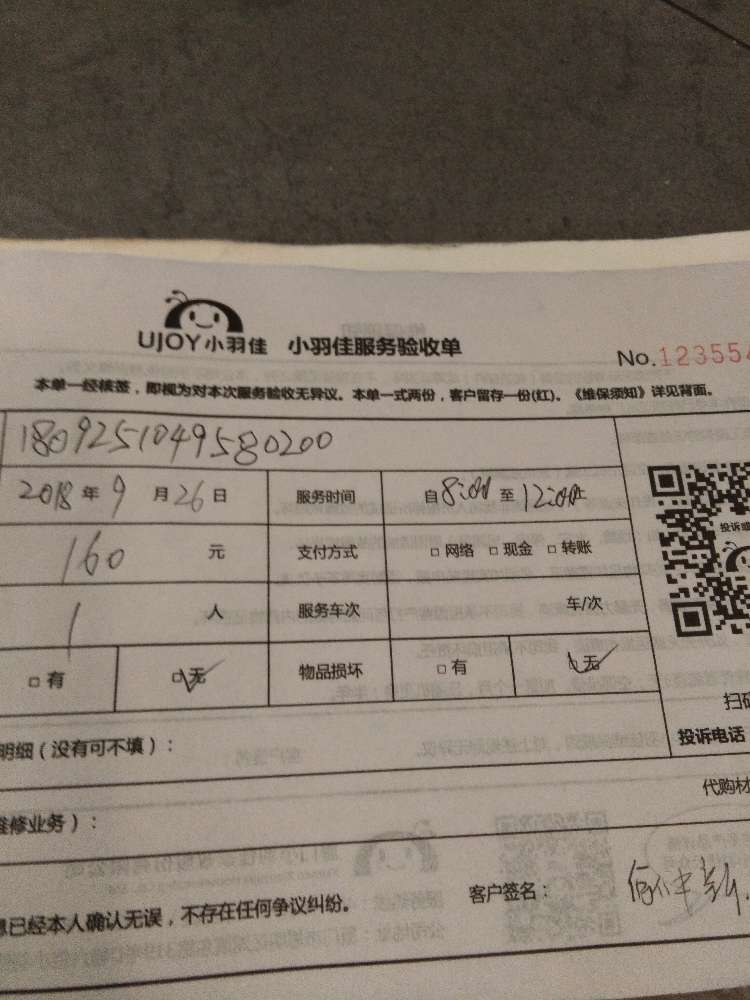 UJOY小羽佳 小羽佳服务验收单
No.123554
本单一经核签，即视为对本次服务验收无异议。本单一式两份，客户留存一份(红)。《维保须知》详见背面。
1809251049580200
2018 年 9 月 26 日 服务时间 自 8:00 至 12:00止
160 元 支付方式 □ 网络 □ 现金 □ 转账
1 人 服务车次 车/次
□ 有 □ 无 物品损坏 □ 有 □ 无
投诉或
扫码
明细（没有可不填）：
投诉电话
代购材
维修业务）：
息已经本人确认无误，不存在任何争议纠纷。
客户签名：